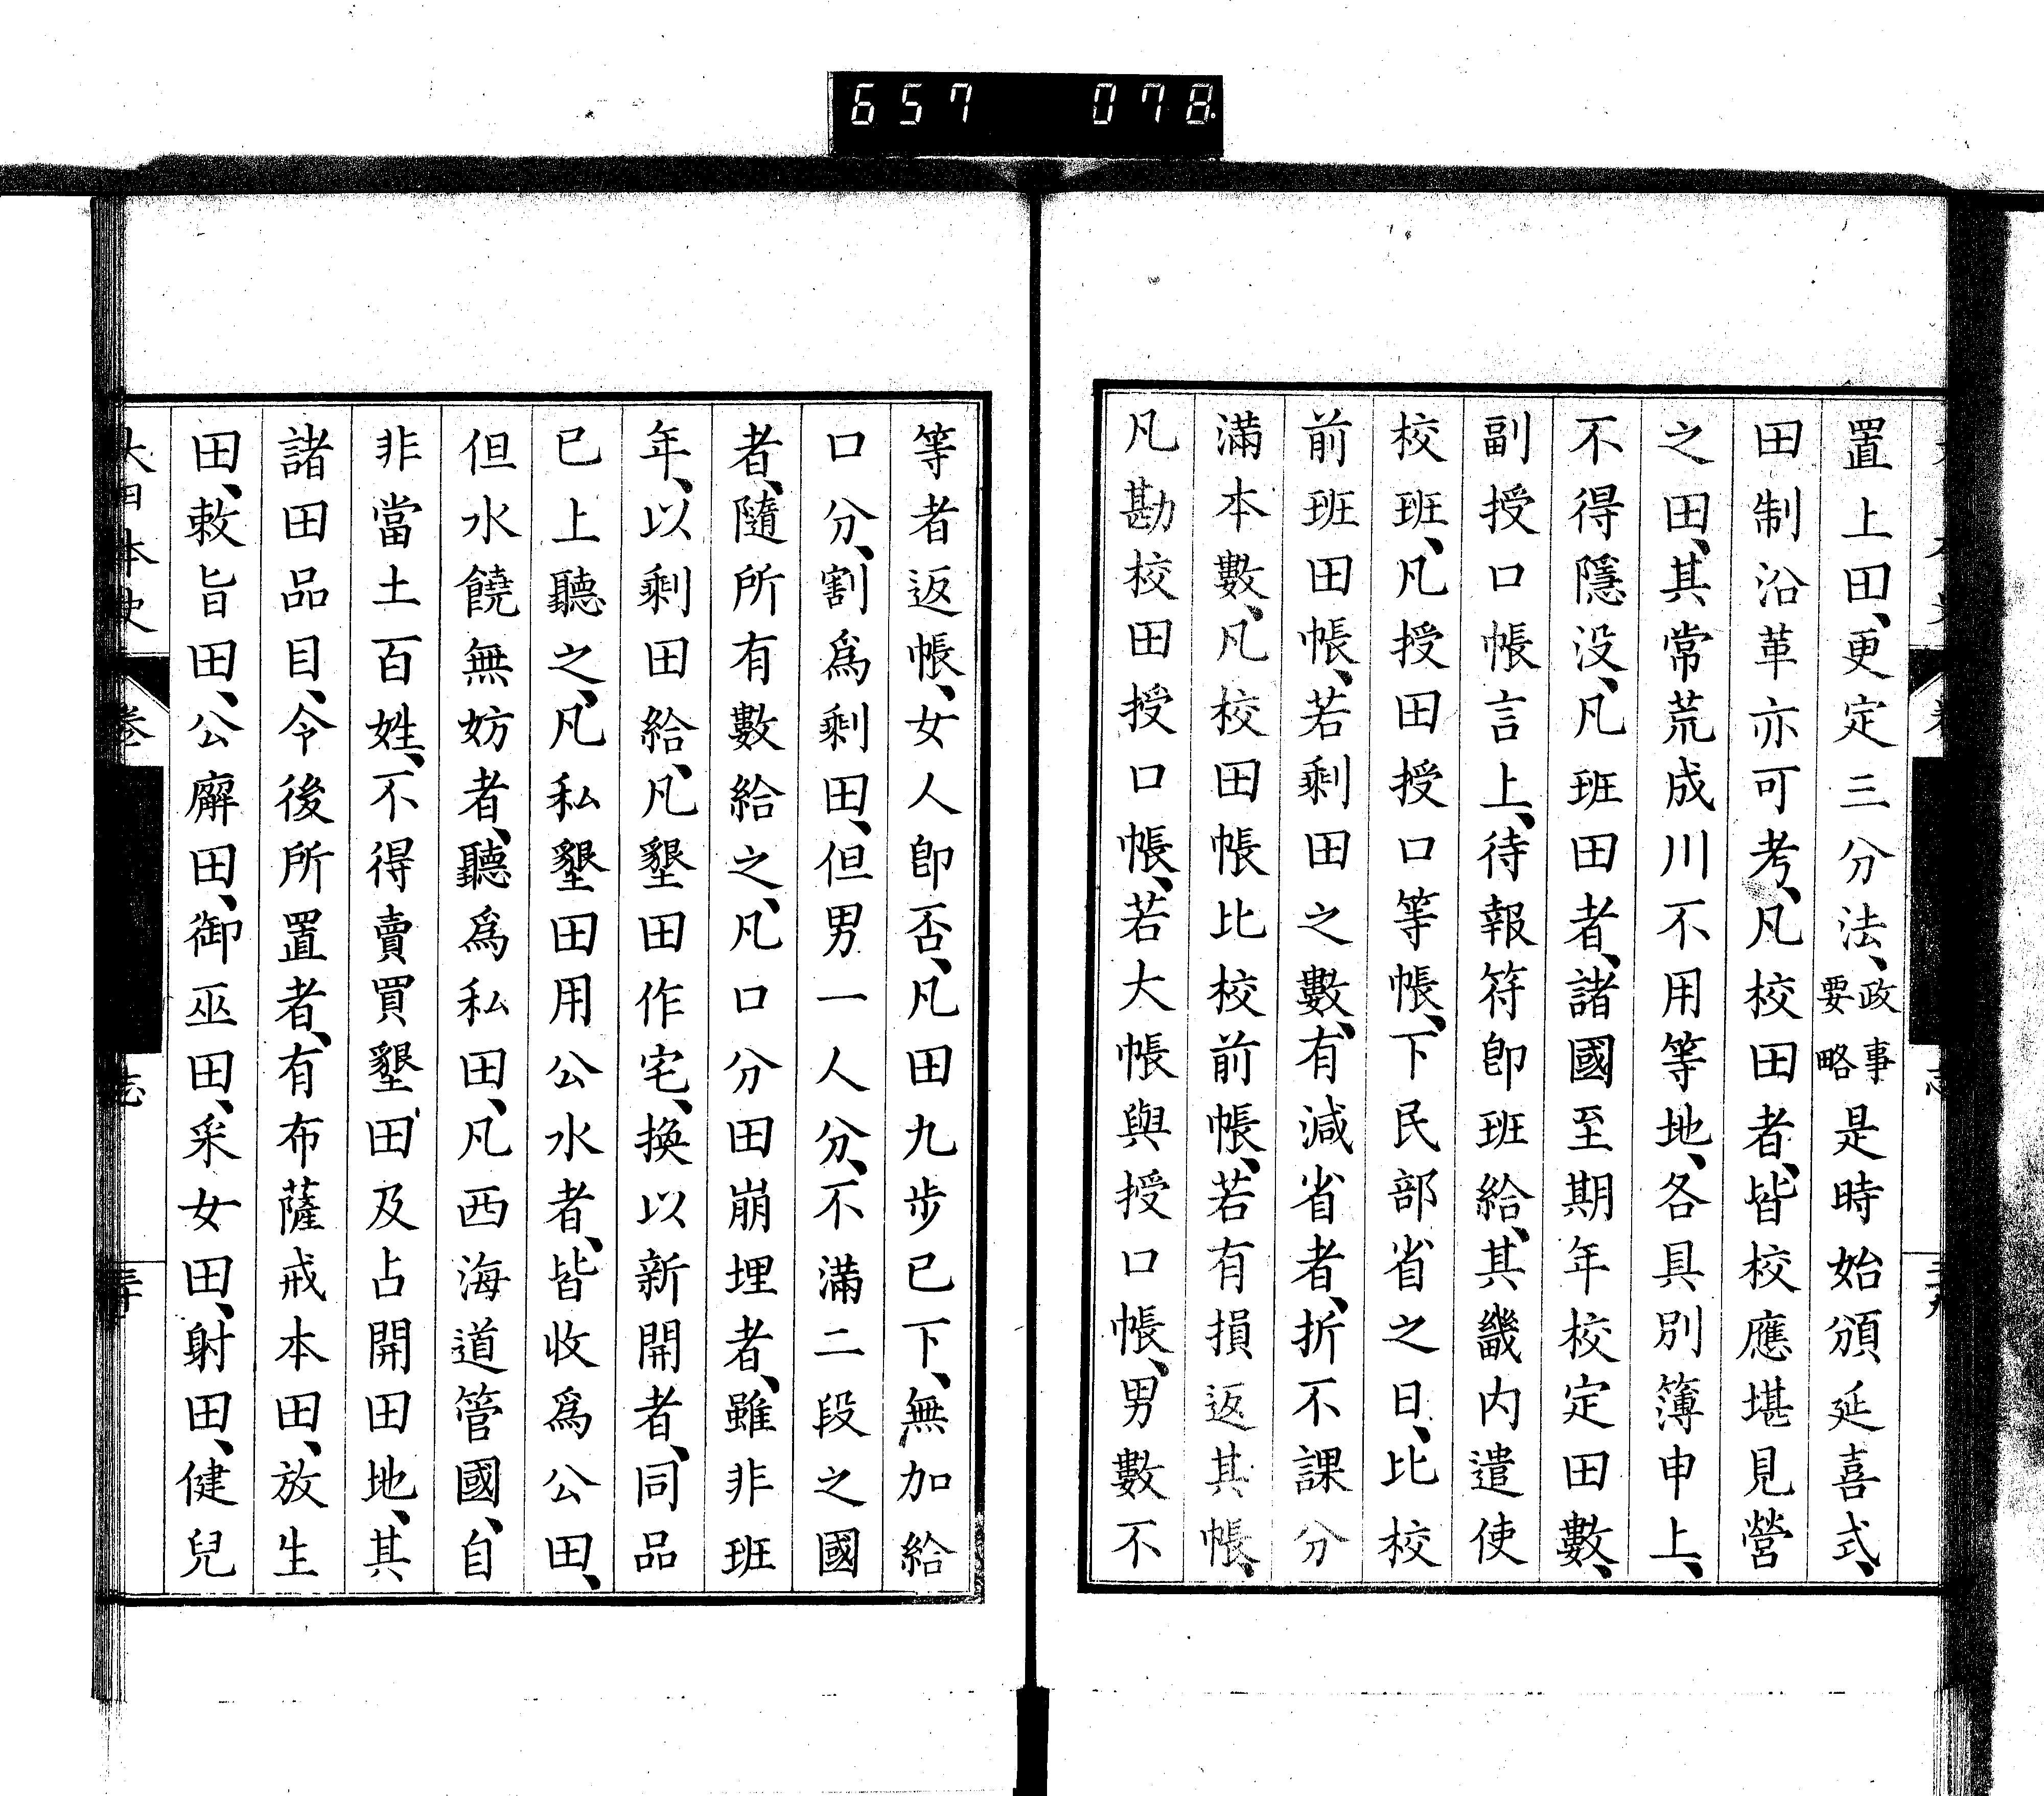 657 078
置上田、更定三分法、政事要略是時始頒延喜式、
田制沿革亦可考、凡校田者、皆校應堪見營
之田、其常荒成川不用等地、各具別簿申上、
不得隱没、凡班田者、諸國至期年校定田數、
副授口帳言上、待報符卽班給、其畿内遣使
校班、凡授田授口等帳、下民部省之日、比校
前班田帳、若剩田之數、有減省者、折不課分
滿本數、凡校田帳比校前帳、若有損返其帳、
凡勘校田授口帳、若大帳與授口帳、男數不
等者返帳、女人卽否、凡田九步已下、無加給
口分、割爲剩田、但男一人分、不滿二段之國
者、隨所有數給之、凡口分田崩埋者、雖非班
年、以剩田給、凡墾田作宅、換以新開者、同品
已上聽之、凡私墾田用公水者、皆收爲公田、
但水饒無妨者、聽爲私田、凡西海道管國、自
非當土百姓、不得賣買墾田及占開田地、其
諸田品目、令後所置者、有布薩戒本田、放生
田、敕旨田、公廨田、御巫田、采女田、射田、健兒
大日本史 卷 志 三十